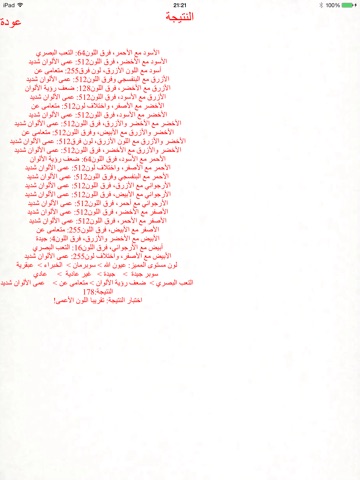 iPad 21:21 100%
النتيجة
عودة
الأسود مع الأحمر، فرق اللون64: التعب البصري
الأسود مع الأخضر، فرق اللون512: عمى الألوان شديد
أسود مع اللون الأزرق، لون فرق255: متعامى عن
الأزرق مع البنفسجي وفرق اللون512: عمى الألوان شديد
الأزرق مع الأخضر، فرق اللون128: ضعف رؤية الألوان
الأزرق مع الأسود، فرق اللون512: عمى الألوان شديد
الأخضر مع الأصفر، واختلاف لون512: متعامى عن
الأخضر مع الأسود، فرق اللون512: عمى الألوان شديد
الأخضر مع الأخضر والأزرق، فرق اللون512: عمى الألوان شديد
الأخضر والأزرق مع الأبيض، وفرق اللون512: متعامى عن
الأخضر والأزرق مع اللون الأزرق، لون فرق512: عمى الألوان شديد
الأخضر والأزرق مع الأخضر، فرق اللون512: عمى الألوان شديد
الأحمر مع الأسود، فرق اللون64: ضعف رؤية الألوان
الأحمر مع الأصفر، واختلاف لون512: عمى الألوان شديد
الأحمر مع البنفسجي وفرق اللون512: عمى الألوان شديد
الأرجواني مع الأزرق، فرق اللون512: عمى الألوان شديد
الأرجواني مع الأبيض، فرق اللون512: عمى الألوان شديد
الأرجواني مع أحمر، فرق اللون512: عمى الألوان شديد
الأصفر مع الأخضر، فرق اللون512: عمى الألوان شديد
الأصفر مع الأحمر، فرق اللون512: عمى الألوان شديد
الأصفر مع الأبيض، فرق اللون255: متعامى عن
الأبيض مع الأخضر والأزرق، فرق اللون4: جيدة
أبيض مع الأرجواني، فرق اللون16: التعب البصري
الأبيض مع الأصفر، واختلاف لون255: عمى الألوان شديد
لون مستوى المميز: عيون الله > سوبرمان > الخبراء > عبقرية
سوبر جيدة > جيدة > غير عادية > عادي
التعب البصري > ضعف رؤية الألوان > متعامى عن > عمى الألوان شديد
النتيجة:178
اختبار النتيجة: تقريبا اللون الأعمى!